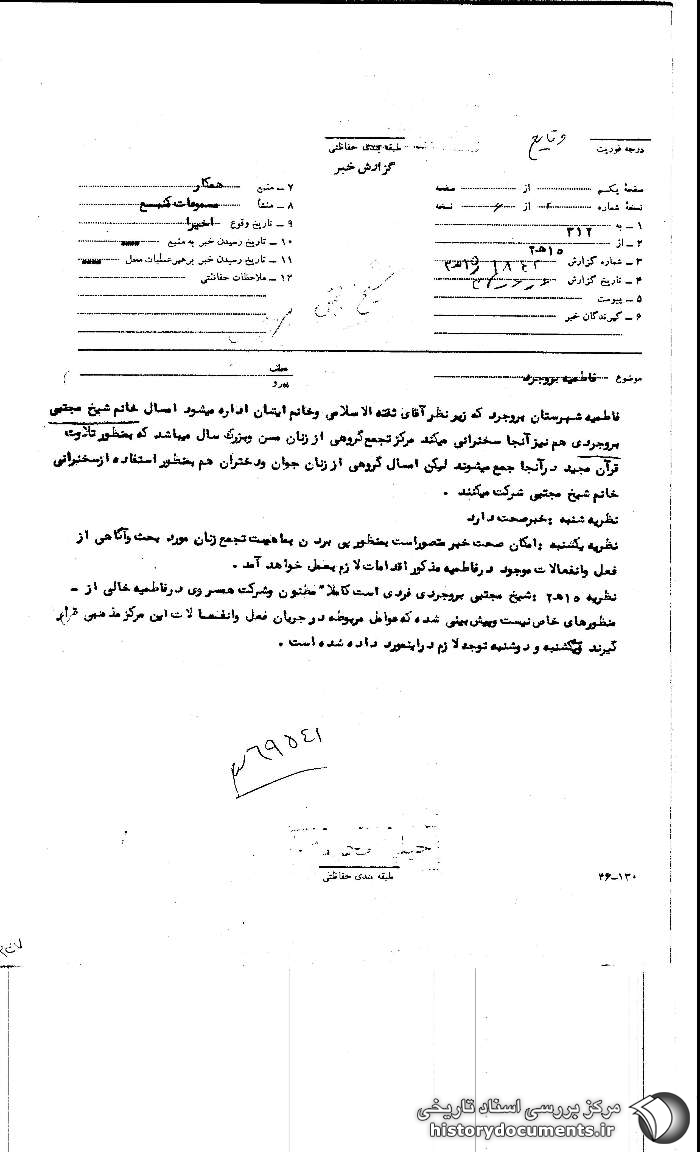 درجه فوریت
وقایع
طبقه بندی حفاظتی
گزارش خبر
صفحهٔ یکم از صفحه
نسخهٔ شماره ۲ از ۶ نسخه
۱ – به ۳۱۲
۲ – از ۱۵هـ۲
۳ – شماره گزارش
۴ – تاریخ گزارش
۵ – پیوست
۶ – گیرندگان خبر
۷ – منبع همکار
۸ – منشأ مسموعات کنبسع
۹ – تاریخ وقوع اخیرا
۱۰ – تاریخ رسیدن خبر به منبع
۱۱ – تاریخ رسیدن خبر برهبر عملیات محل
۱۲ – ملاحظات حفاظتی
موضوع فاطمیه بروجرد
عطف
پیرو
فاطمیه شهرستان بروجرد که زیر نظر آقای ثقته الاسلامی وخانم ایشان اداره میشود امسال خانم شیخ مجتبی
بروجردی هم نیز آنجا سخنرانی میکند مرکز تجمع گروهی از زنان مسن وبزرگ سال میباشد که بمنظور تلاوت
قرآن مجید در آنجا جمع میشوند لیکن امسال گروهی از زنان جوان ودختران هم بمنظور استفاده از سخنرانی
خانم شیخ مجتبی شرکت میکنند .
نظریه شنبه : خبر صحت دارد
نظریه یکشنبه : امکان صحت خبر متصور است بمنظور پی بردن بماهیت تجمع زنان مورد بحث وآگاهی از
فعل وانفعالات موجود در فاطمیه مذکور اقدامات لازم بعمل خواهد آمد .
نظریه ۱۵هـ۲ : شیخ مجتبی بروجردی فردی است کاملا" مظنون وشرکت همسر وی در فاطمیه خالی از –
منظورهای خاص نیست وپیش بینی شده که عوامل مربوطه در جریان فعل وانفعالات این مرکز مذهبی قرار
گیرند ویکشنبه و دوشنبه توجه لازم در اینمورد داده شده است .
۳۶۹۵۴۱
طبقه بندی حفاظتی
۴۶–۱۳۰
مرکز بررسی اسناد تاریخی
historydocuments.ir